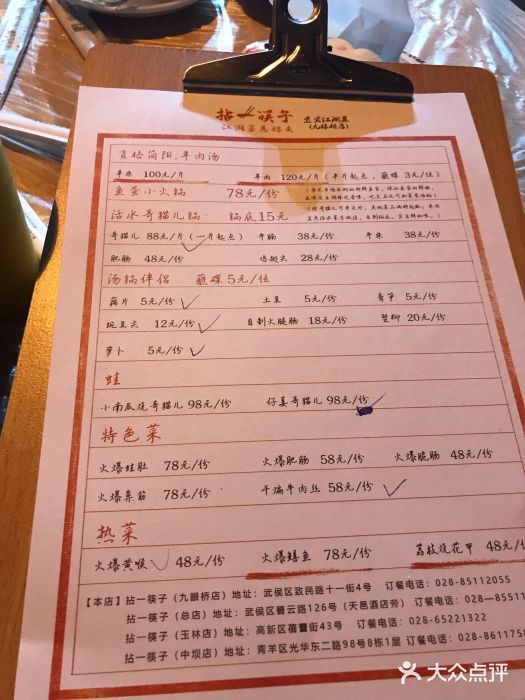 拈一筷子
江湖菜
(九眼桥店)
资格简阳.羊肉汤
羊杂 100元/斤 羊肉 120元/斤(半斤起点,蘸碟 3元/位)
鱼蛋小火锅 78元/份
活水哥猫儿锅 锅底15元
哥猫儿 88元/斤(一斤起点) 羊肠 38元/份 羊杂 38元/份
肥肠 48元/份 鸡翅尖 28元/份
汤锅伴侣 蘸碟5元/位
藕片 5元/份 土豆 5元/份 青笋 5元/份
豌豆尖 12元/份 自制火腿肠 18元/份 蟹柳 20元/份
萝卜 5元/份
蛙
小南瓜烧哥猫儿 98元/份 仔姜哥猫儿 98元/份
特色菜
火爆蛙肚 78元/份 火爆肥肠 58元/份 火爆脆肠 48元/份
火爆鼻筋 78元/份 干煸牛肉丝 58元/份
热菜
火爆黄喉 48元/份 火爆鳝鱼 78元/份 荔枝烧花甲 48元/份
【本店】拈一筷子(九眼桥店)地址:武侯区致民路十一街4号 订餐电话:028-85112055
拈一筷子(总店)地址:武侯区碧云路126号(天邑酒店旁)订餐电话:028—8551
拈一筷子(玉林店)地址:高新区蓓蕾街43号 订餐电话:028-65221322
拈一筷子(中坝店)地址:青羊区光华东二路98号8栋1层 订餐电话:028-8611758
大众点评